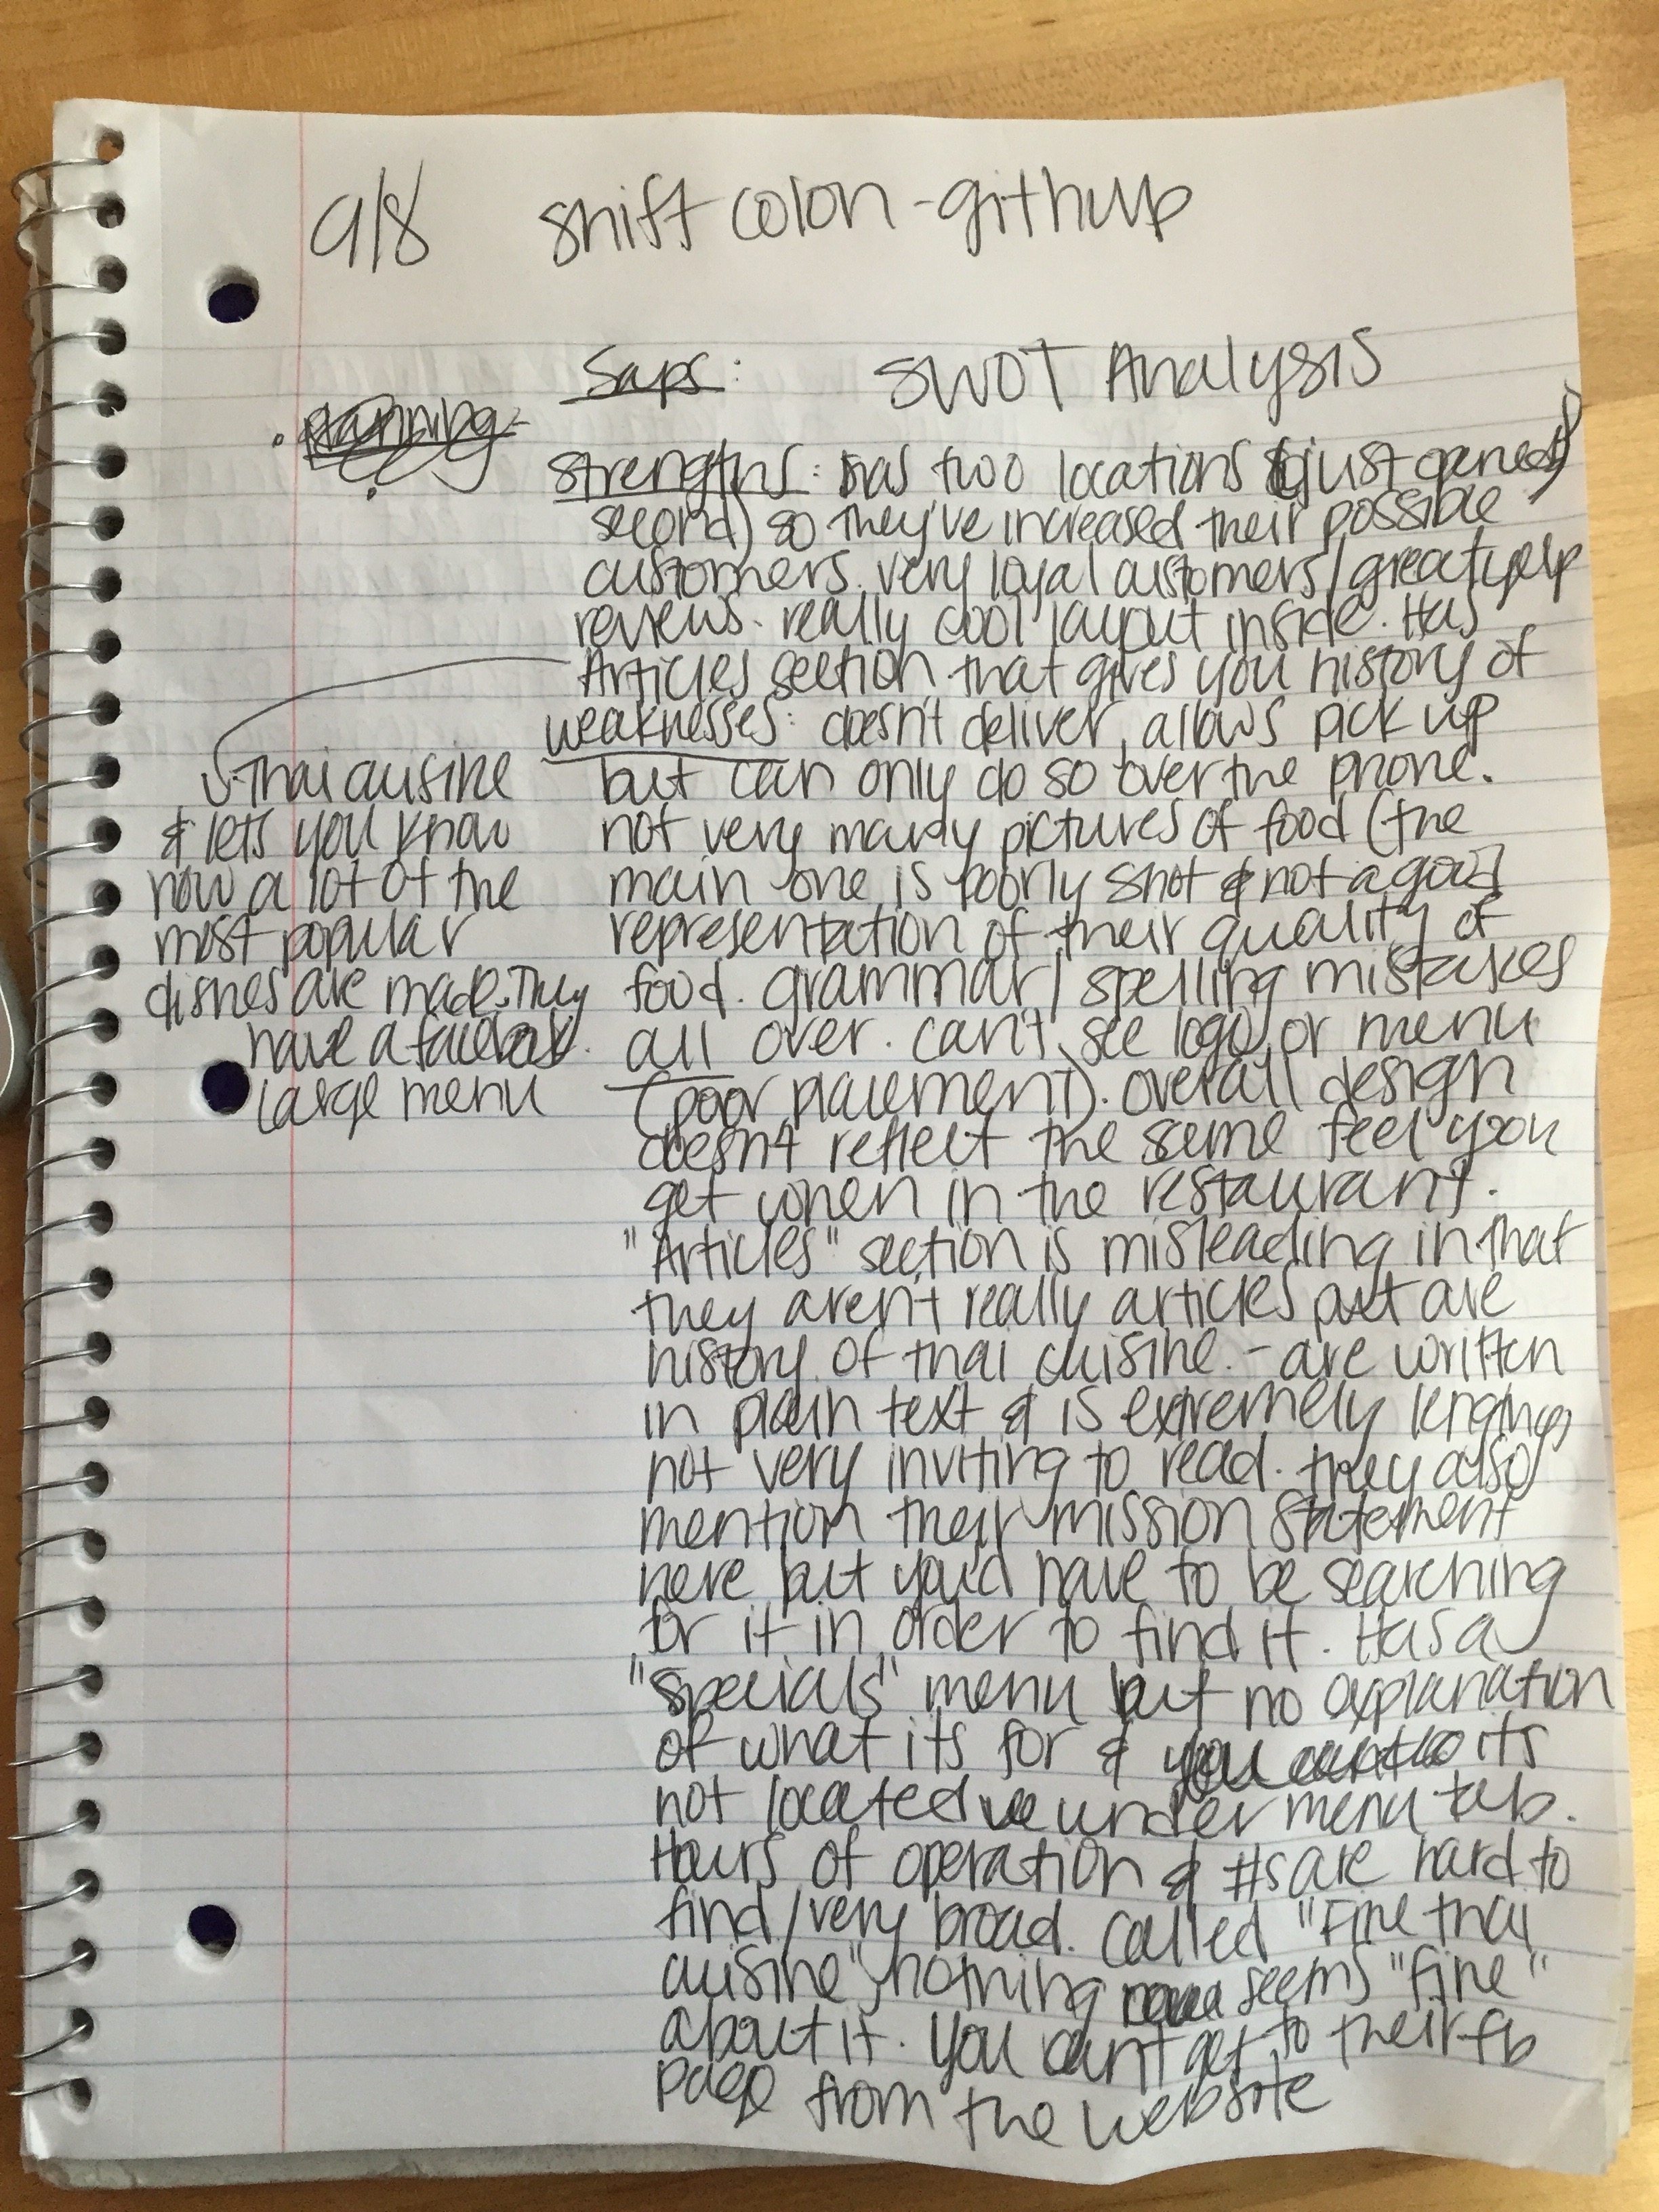 9/8 shift colon - githup
Saps: SWOT Analysis
strengths: has two locations (just opened
second) so they've increased their possible
customers. very loyal customers/great yelp
reviews. really cool layout inside. Has
Articles section that gives you history of
Thai cuisine
& lets you know
how a lot of the
most popular
dishes are made. They
have a facebook.
Large menu
weaknesses: doesn't deliver, allows pick up
but can only do so over the phone.
not very many pictures of food (the
main one is poorly shot & not a good
representation of their quality of
food. grammar/spelling mistakes
all over. can't see logo or menu
(poor placement). overall design
doesn't reflect the same feel you
get when in the restaurant.
"Articles" section is misleading in that
they aren't really articles but are
history of thai cuisine. - are written
in plain text & is extremely lengthy,
not very inviting to read. they also
mention their mission statement
here but you'd have to be searching
for it in order to find it. Has a
"specials" menu but no explanation
of what its for & its
not located under menu tab.
Hours of operation & #s are hard to
find/very broad. Called "Fine thai
cuisine", nothing seems "fine"
about it. You can't get to their fb
page from the website